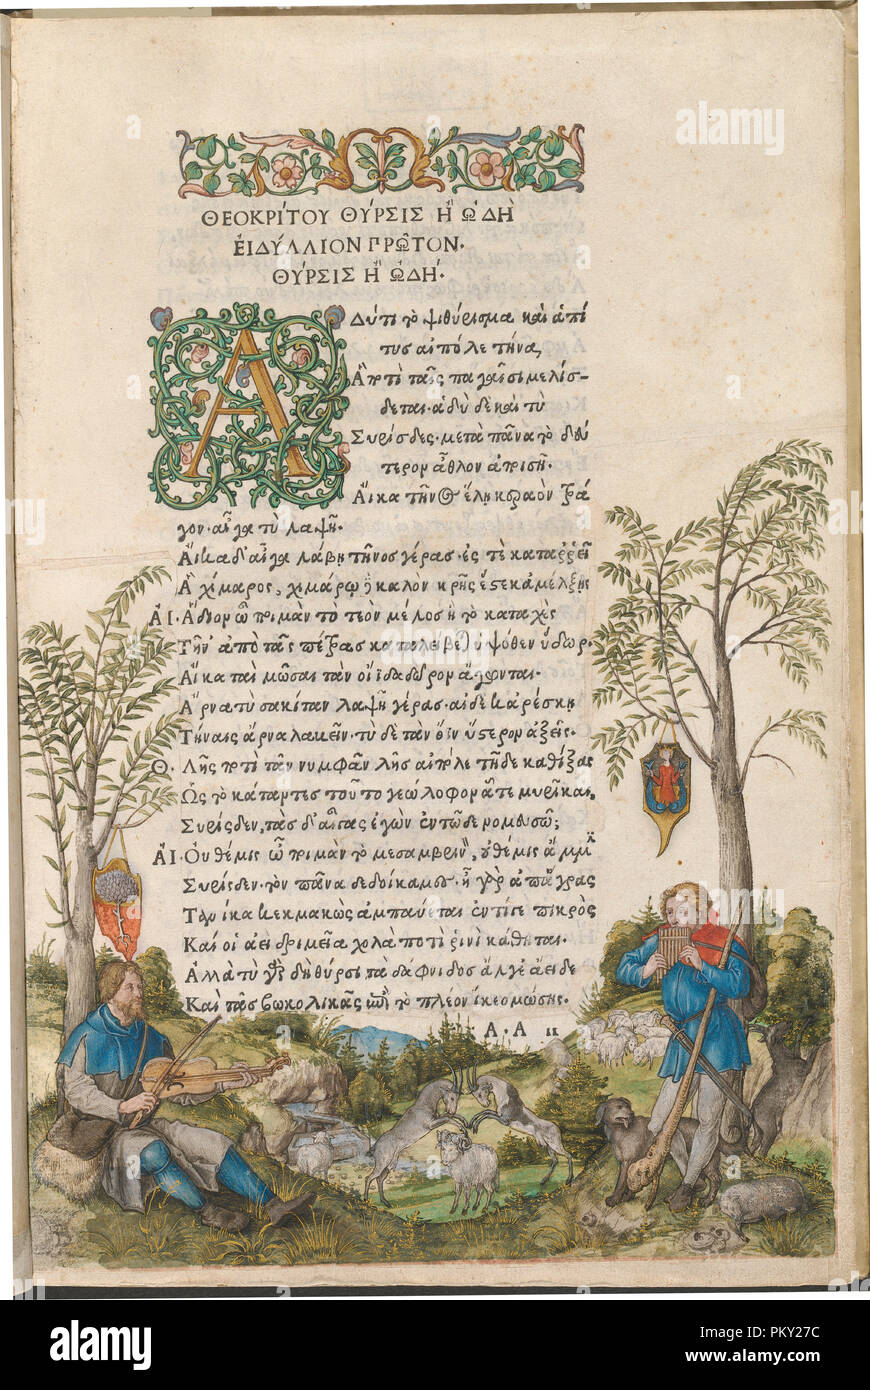 ΘΕΟΚΡΊΤΟΥ ΘΎΡΣΙΣ Ἢ ὨΔΗ
ἘΙΔΎΛΛΙΟΝ ΠΡΩ͂ΤΟΝ.
ΘΎΡΣΙΣ Ἢ ὨΔΉ.
Α ΔΎτι τὸ ψιθύρισμα καὶ ἁ πί
τυς αἰπόλε τήνα,
Ἃ ποτὶ ταῖς παγαῖσι μελίσ-
δεται. ἁδὺ δὲ καὶ τὺ
Συρίσδες. μετὰ πᾶνα τὸ δεύ
τερον ἆθλον ἀποισῇ.
Αἴκα τῆνος ἕλῃ κεραὸν τρά
γον. αἶγα τὺ λαψῇ.
Αἴκα δ' αἶγα λάβῃ τῆνος γέρας. ἐς τὲ καταῤῥεῖ
Ἁ χίμαρος, χιμάρῳ δὲ καλὸν κρῆς ἔστε κ' ἀμέλξῃς
ΑΙ. Ἅδιον ὦ ποιμὰν τὸ τεὸν μέλος ἢ τὸ καταχὲς
Τῆν' ἀπὸ τᾶς πέτρας καταλείβεται ὑψόθεν ὕδωρ.
Αἴκα ταὶ μῶσαι τὰν οἴιδα δῶρον ἄγωνται.
Ἄρνα τὺ σακίταν λαψῇ γέρας. αἰ δέ κ' ἀρέσκῃ
Τήναις ἄρνα λαβεῖν. τὺ δὲ τὰν ὄϊν ὕστερον ἀξεῖς.
Θ. Λῇς ποτὶ τᾶν νυμφᾶν λῇς αἰπόλε τῇδε καθίξας
Ὡς τὸ κάταντες τοῦτο γεώλοφον ἅτε μυρῖκαι,
Συρίσδεν, τὰς δ' αἶγας ἐγὼν ἐν τῷδε νομευσῶ;
ΑΙ. Οὐ θέμις ὦ ποιμὰν τὸ μεσαμβρινὸν, οὐ θέμις ἄμμιν
Συρίσδεν. τὸν πᾶνα δεδοίκαμες. ἦ γὰρ ἀπ' ἄγρας
Τανίκα κεκμακὼς ἀμπαύεται ἐντί γε πικρὸς
Καί οἱ ἀεὶ δριμεῖα χολὰ ποτὶ ῥινὶ κάθηται.
Ἀλλὰ τὺ γὰρ δὴ θύρσι τὰ δάφνιδος ἄλγε' ἄειδε
Καὶ τᾶς βωκολικᾶς ἐπὶ τὸ πλέον ἵκεο μώσης.
Α.Α ιι
alamy
alamy
alamy
alamy
PKY27C
www.alamy.com